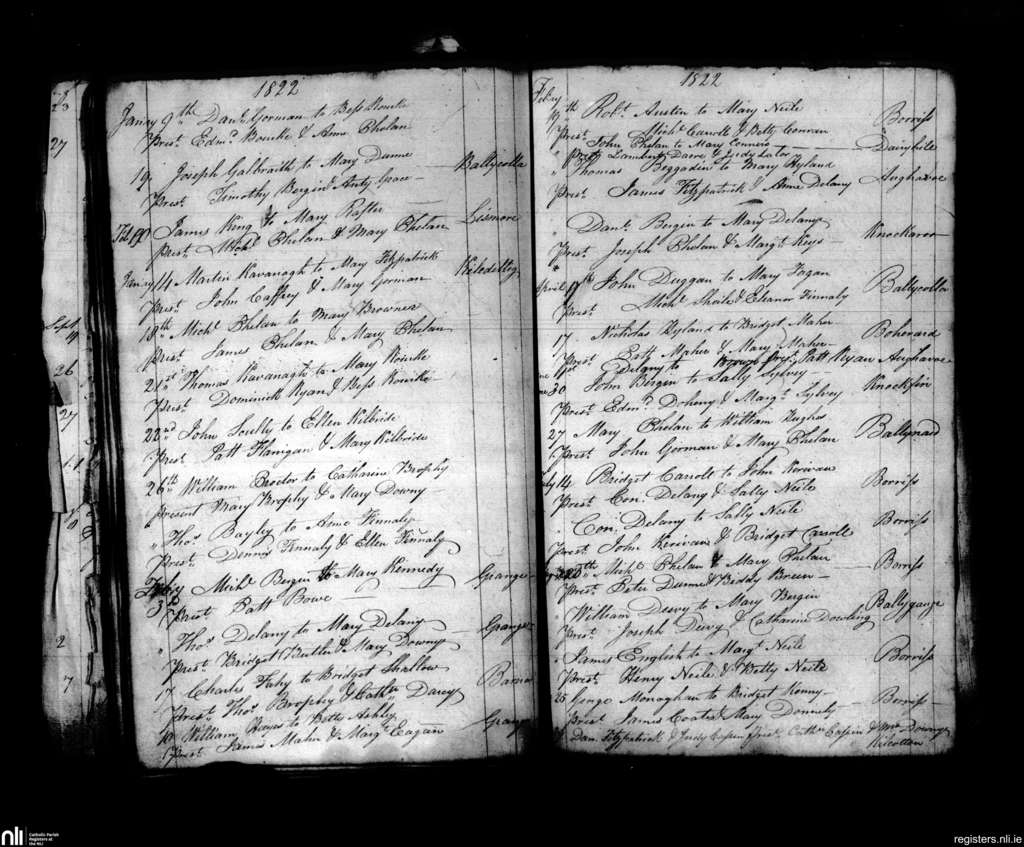 1822
Janry 9th Danl Gorman to Bess Rourke
Prest Edmd Bourke & Anne Phelan
19 Joseph Galbraith to Mary Dunne Ballycolla
Prest Timothy Bergin & Anty Grace
James King to Mary Rafter Lismore
Prest Michl Phelan & Mary Phelan
Janry 14 Martin Kavanagh to Mary Fitzpatrick
Prest John Caffrey & Mary Gorman
18th Michl Phelan to Mary Browner
Prest James Phelan & Mary Phelan
21st Thomas Kavanagh to Mary Rourke
Prest Dominick Ryan & Bess Rourke
22nd John Scully to Ellen Kilbride
Prest Patt Flanigan & Mary Kilbride
26th William Proctor to Catharine Brophy
Present Mary Brophy & Mary Downy
" Thos Bayley to Anne Finnaly
Prest Dennis Finnaly & Ellen Finnaly
Febry Michl Bergin to Mary Kennedy Grange
3rd Prest Patt Bowe
" Thos Delany to Mary Delany Grange
Prest Bridget Butler & Mary Downy
17 Charles Fahy to Bridget Shallow
Prest Thos Brophy & Cathr Darcy
William to Betty Ashly Grange
Prest James Mahr & Margt Eagan
1822
Febry
19th Robt Austin to Mary Neile Borriss
Prest Michl Carroll & Betty Connan
" John Phelan to Mary Connors Dairyhile
Prest Lambert &
" Thomas Beggadin to Mary Hyland Aughavae
Prest James Fitzpatrick & Anne Delany
" Danl Bergin to Mary Delany Knockaroe
Prest Joseph Phelan & Margt Keys
April John Duggan to Mary Fagan Ballycolla
Prest Michl & Eleanor Finnaly
17 Nicholas Hyland to Bridget Maher Bohenard
Prest Patt Maher & Mary Maher
to Patt Ryan Aughavae
30 John Bergin to Sally Sylvey Knockfin
Prest Edmd Doheny & Margt Sylvey
27 Mary Phelan to William Hughes
Prest John Gorman & Mary Phelan
14 Bridget Carroll to John Kerwan Borriss
Prest Con. Delany & Sally Neile
" Con. Delany to Sally Neile Borriss
Prest John Kerwan & Bridget Carroll
Michl Phelan to Mary Phelan Borriss
Prest Peter Dunne & Biddy Breen
" William Deevy to Mary Bergin Ballygauge
Prest Joseph Deevy & Catharine Dowling
" James English to Margt Neile Borriss
Prest Henry Neile & Betty Neile
25 Monaghan to Bridget Kenny Borriss
Prest James Coates & Mary Donnely
Dan. Fitzpatrick & Judy Prest Cathn & Downy
Kilcotton
23
27
Septr
19
26
27
2
7
nli
Catholic Parish
Registers at
the NLI
registers.nli.ie